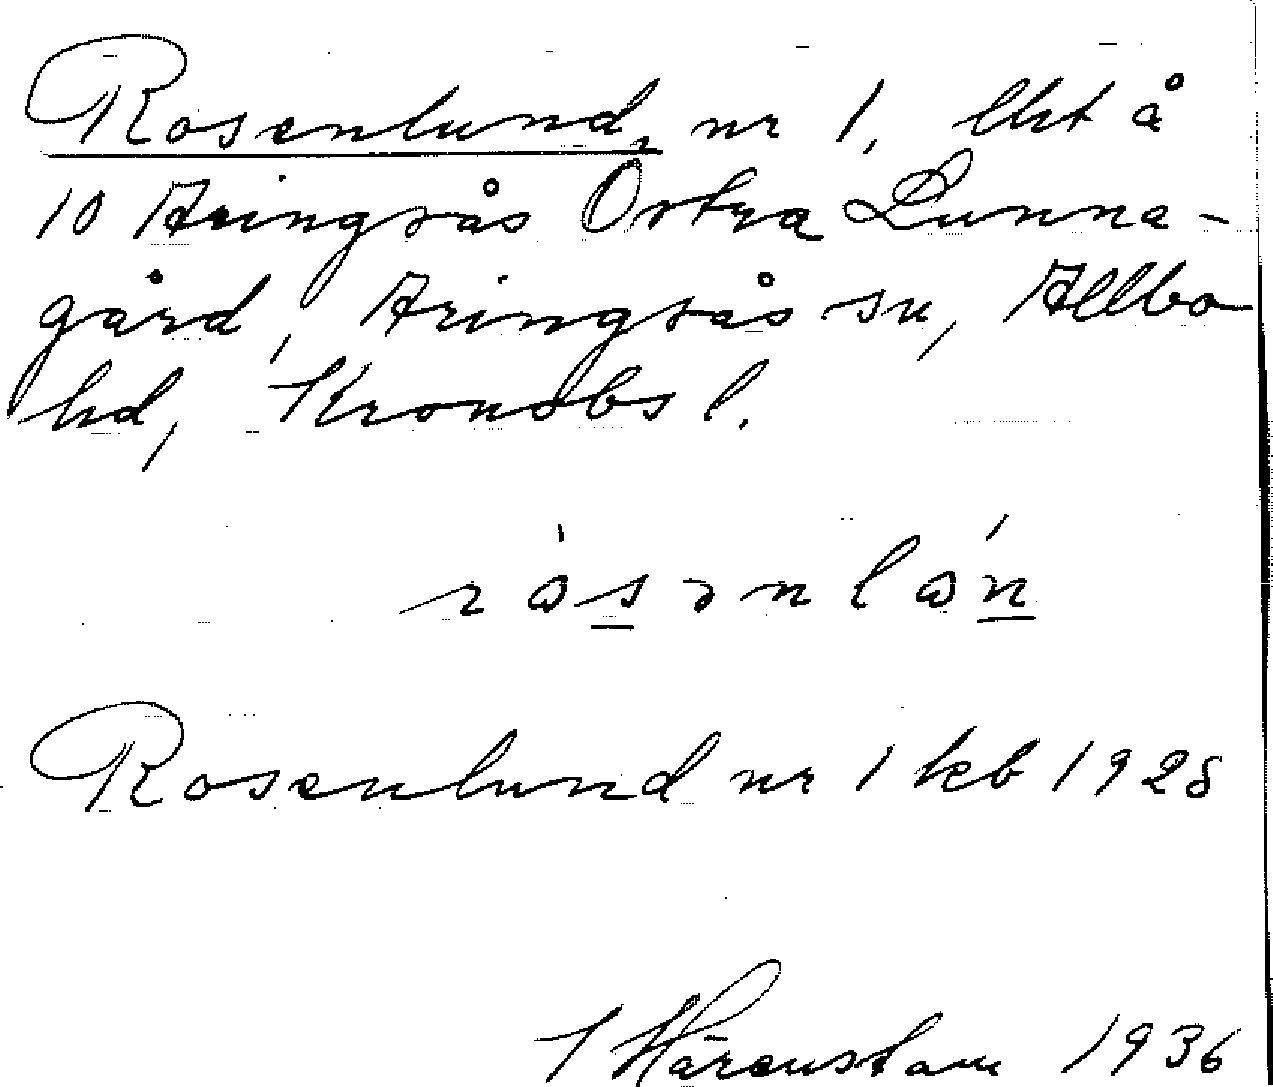 Rosenlund, nr 1, lht å
10 Aringsås Östra Lunna-
gård, Aringsås sn, Allbo
hd, Kronobs l.
rosənlon
Rosenlund nr 1 kb 1928
Härenstam 1936